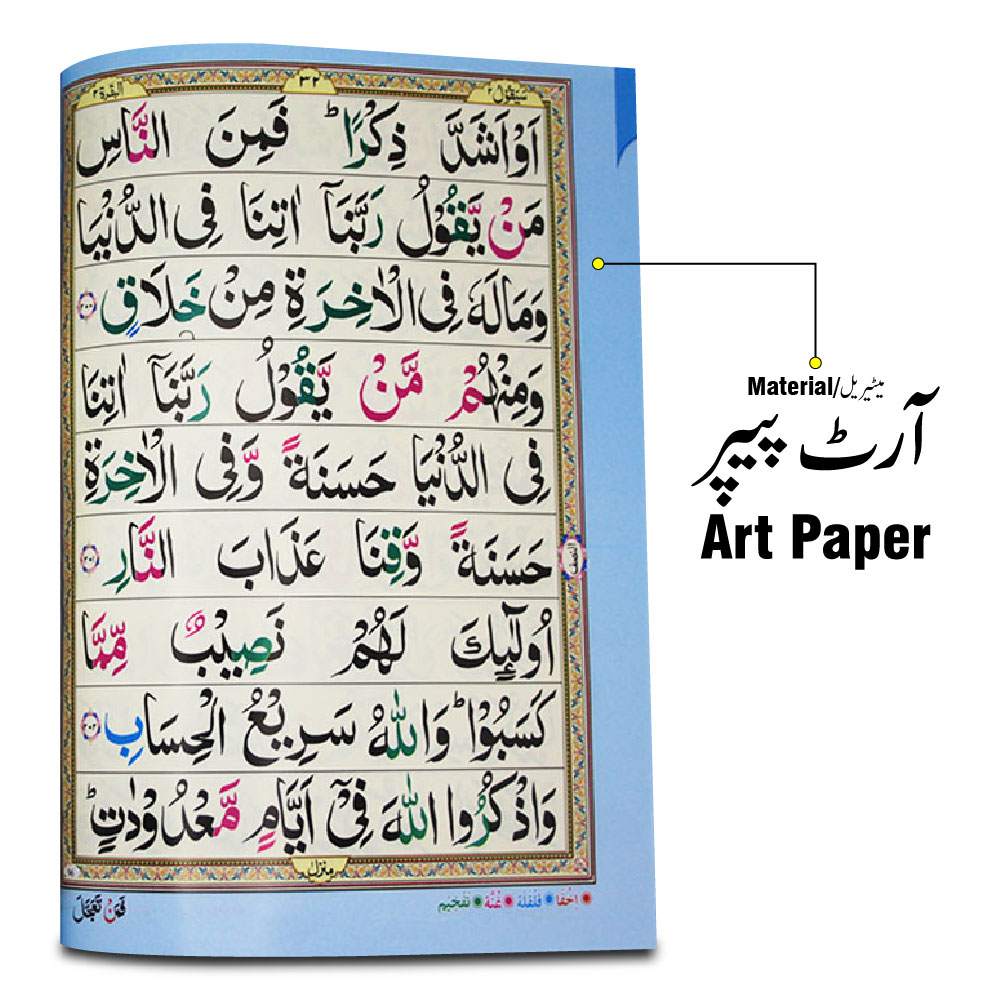 سيقول ٢ ٣٢ البقرة ٢
اَوۡ اَشَدَّ ذِكۡرًا ؕ فَمِنَ النَّاسِ
مَنۡ يَّقُوۡلُ رَبَّنَاۤ اٰتِنَا فِى الدُّنۡيَا
وَمَا لَهٗ فِى الۡاٰخِرَةِ مِنۡ خَلَاقٍ ﴿۲۰۰﴾
وَمِنۡهُمۡ مَّنۡ يَّقُوۡلُ رَبَّنَاۤ اٰتِنَا
فِى الدُّنۡيَا حَسَنَةً وَّفِى الۡاٰخِرَةِ
حَسَنَةً وَّقِنَا عَذَابَ النَّارِ ﴿۲۰۱﴾
اُولٰٓٮِٕكَ لَهُمۡ نَصِيۡبٌ مِّمَّا
كَسَبُوۡا ؕ وَاللّٰهُ سَرِيۡعُ الۡحِسَابِ ﴿۲۰۲﴾
وَاذۡكُرُوا اللّٰهَ فِىۡٓ اَيَّامٍ مَّعۡدُوۡدٰتٍ ؕ
منزل
اِخْفَا قَلْقَلَه غُنَّه تَفْخِيْم
فَمَنۡ تَعَجَّلَ
Material/میٹیریل
آرٹ پیپر
Art Paper